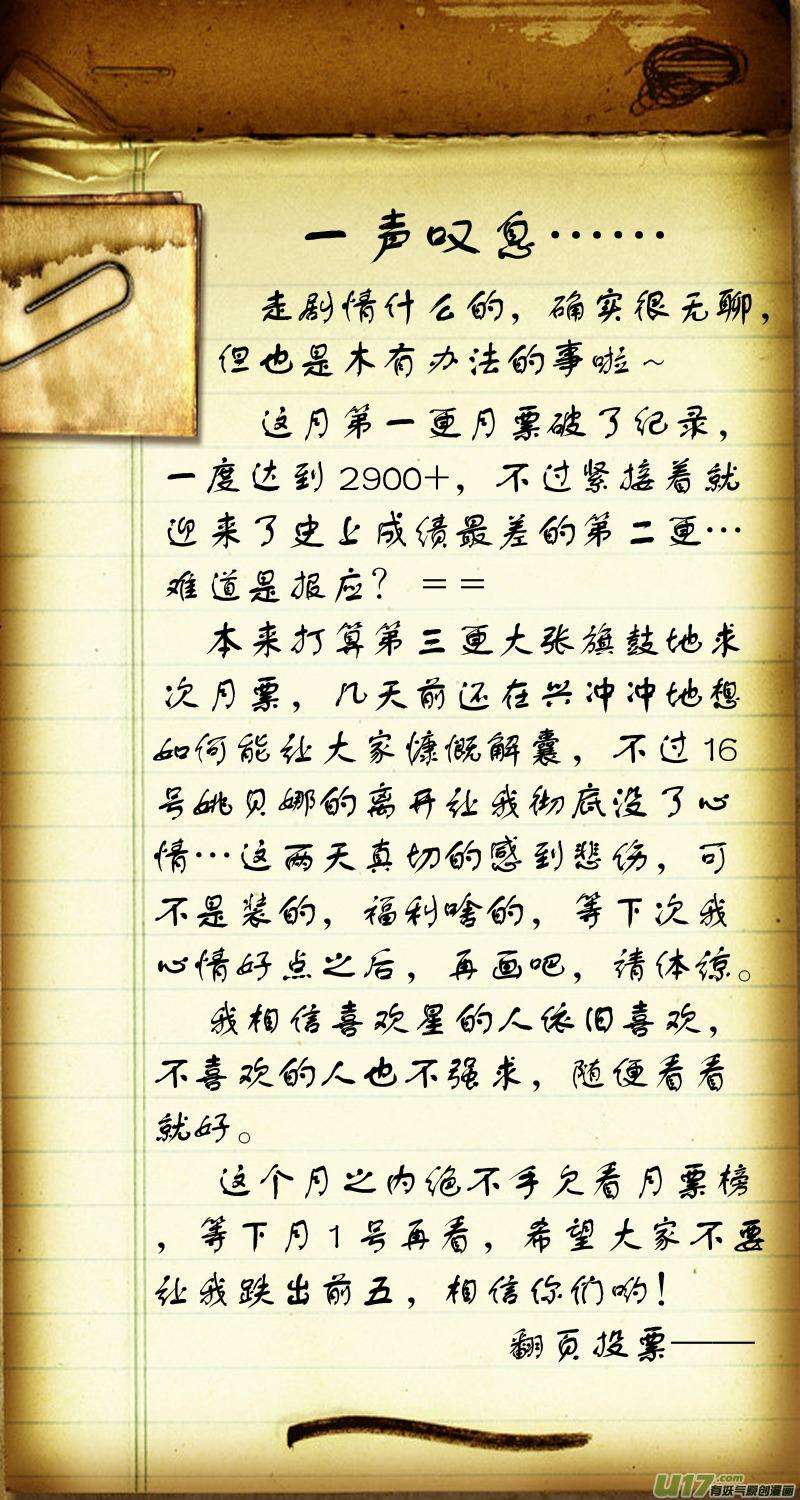 一声叹息……
走剧情什么的，确实很无聊，
但也是木有办法的事啦～
这月第一更月票破了纪录，
一度达到2900+，不过紧接着就
迎来了史上成绩最差的第二更…
难道是报应？==
本来打算第三更大张旗鼓地求
次月票，几天前还在兴冲冲地想
如何能让大家慷慨解囊，不过16
号姚贝娜的离开让我彻底没了心
情…这两天真切的感到悲伤，可
不是装的，福利啥的，等下次我
心情好点之后，再画吧，请体谅。
我相信喜欢星的人依旧喜欢，
不喜欢的人也不强求，随便看看
就好。
这个月之内绝不手欠看月票榜
，等下月1号再看，希望大家不要
让我跌出前五，相信你们哟！
翻页投票——
U17.com
有妖气原创漫画